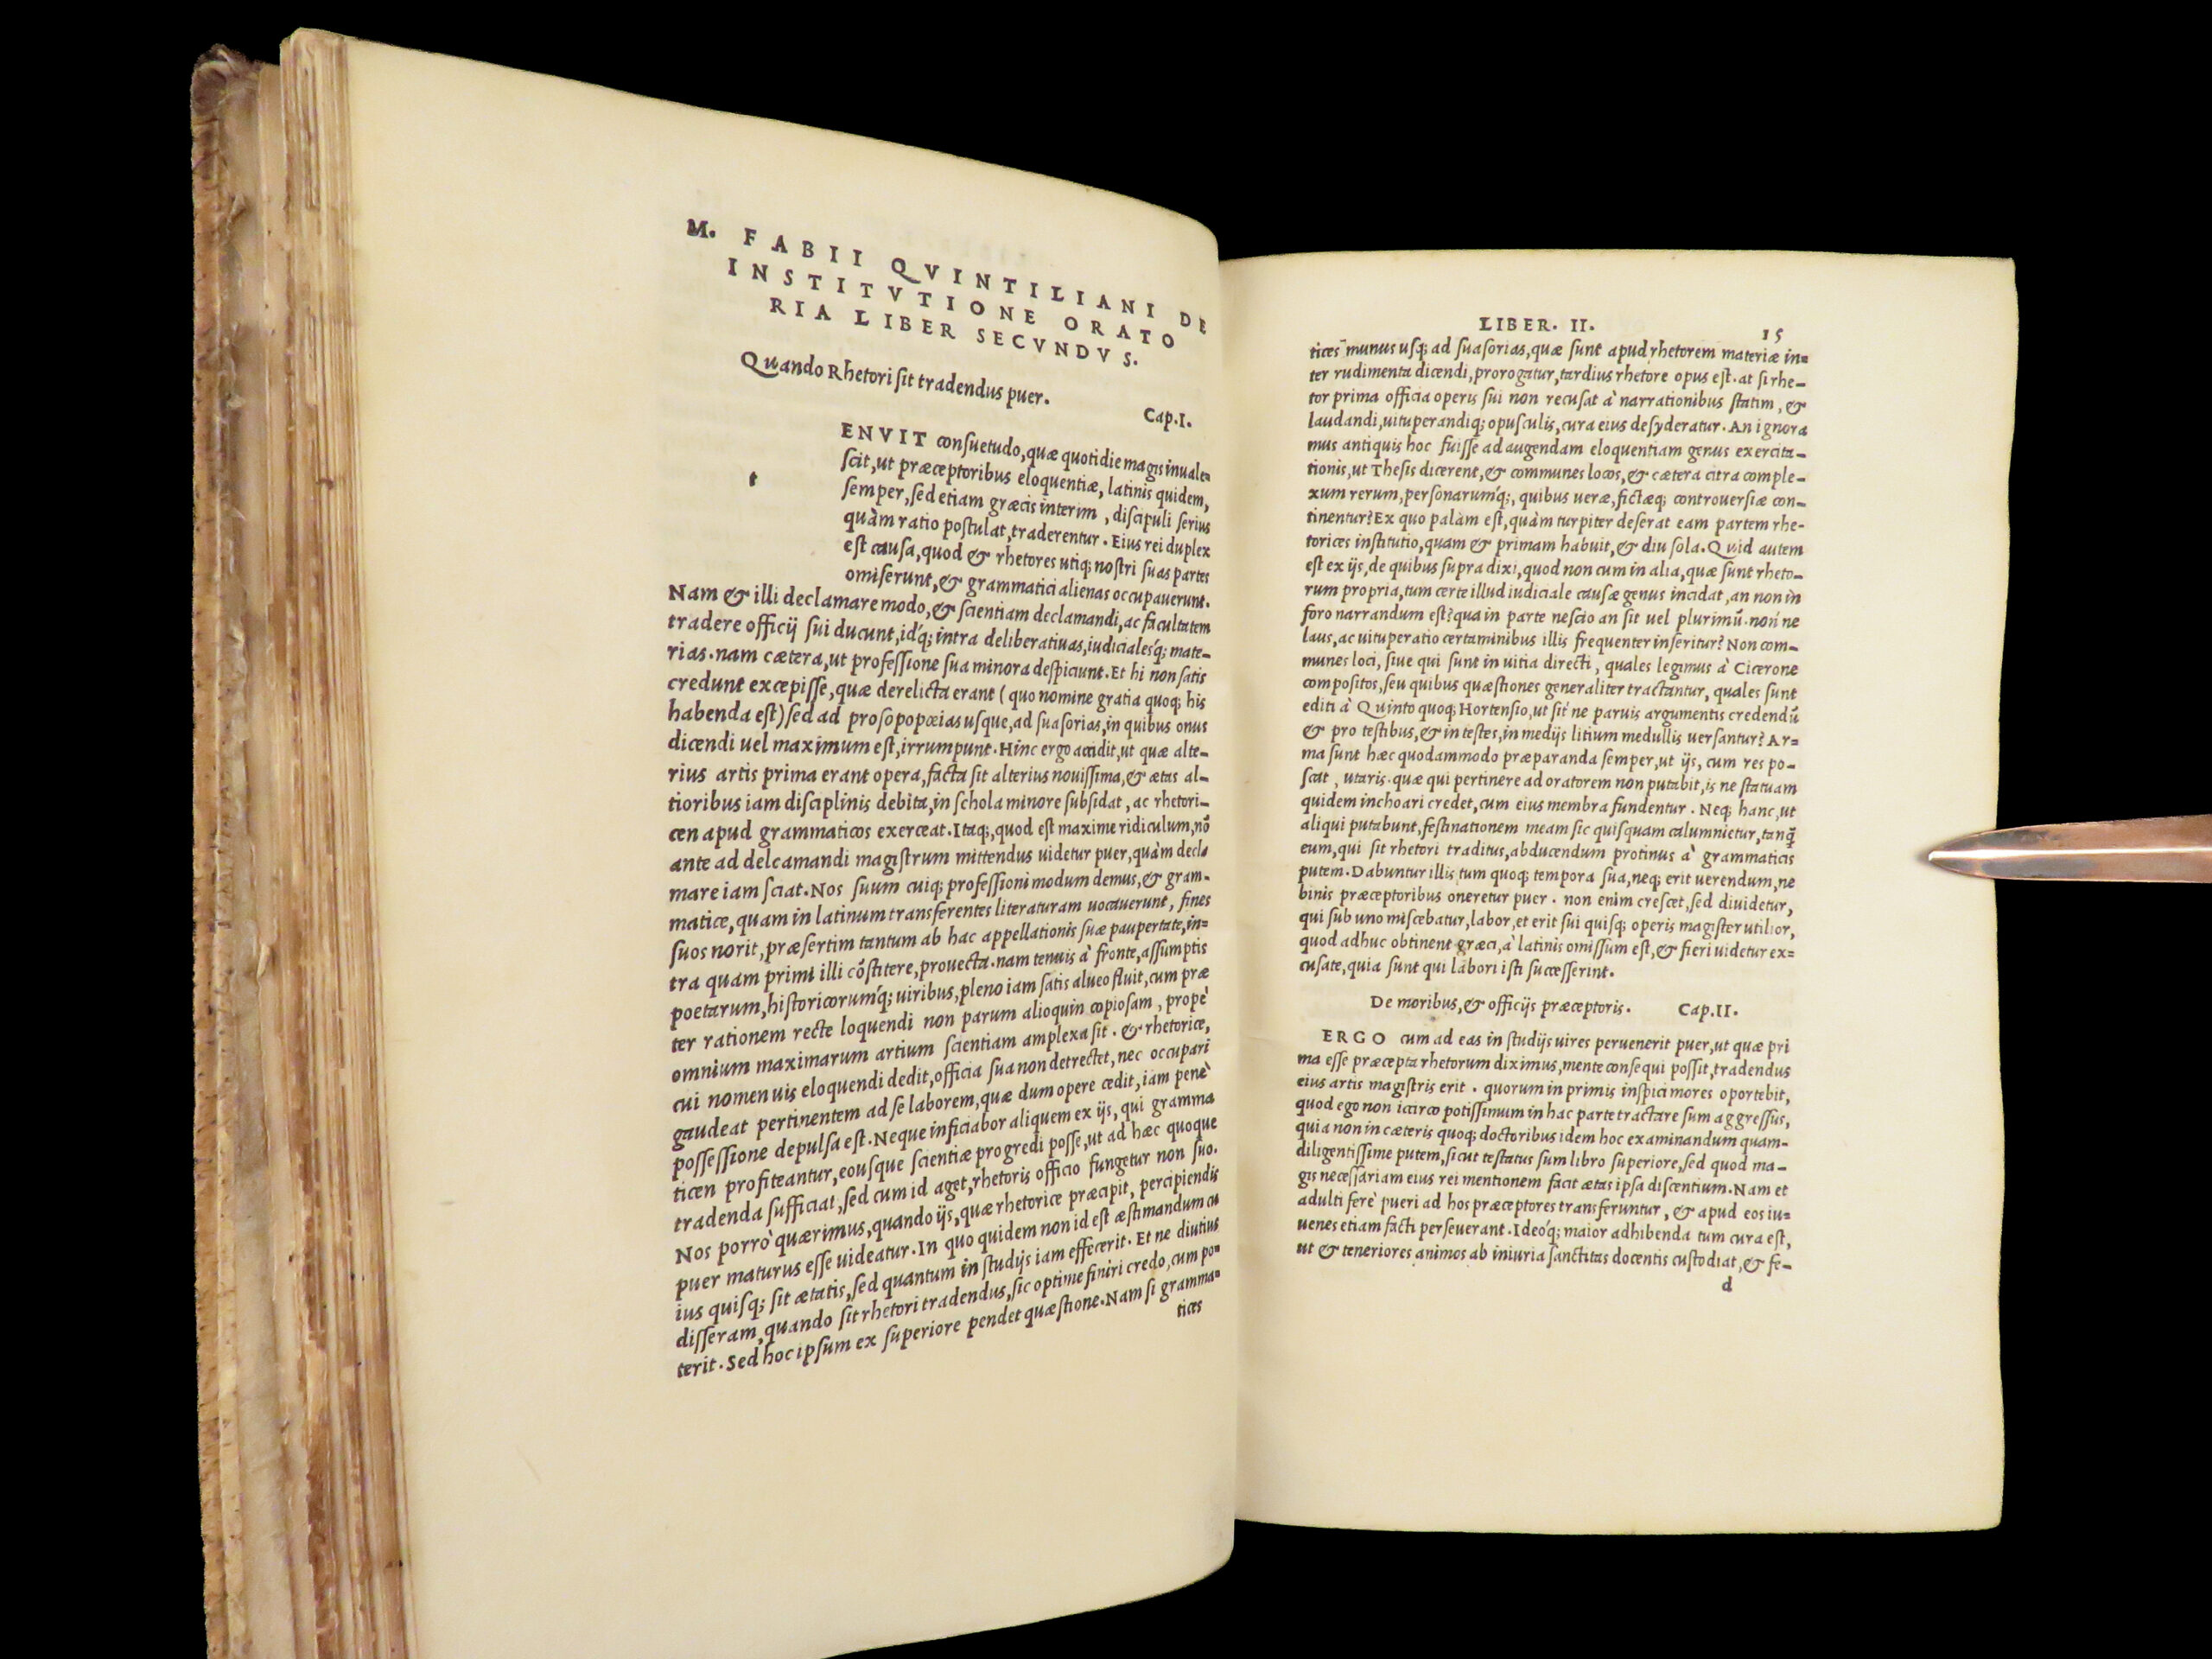 M. FABII QVINTILIANI DE
INSTITVTIONE ORATO
RIA LIBER SECVNDVS.
Quando Rhetori ſit tradendus puer.
Cap.I.
t
ENVIT conſuetudo,quæ quotidie magis inuale=
ſcit,ut præceptoribus eloquentiæ, latinis quidem,
ſemper,ſed etiam græcis interim , diſcipuli ſerius
quàm ratio poſtulat,traderentur . Eius rei duplex
eſt cauſa,quod & rhetores utiq; noſtri ſuas partes
omiſerunt,& grammatici alienas occupauerunt.
Nam & illi declamare modo,& ſcientiam declamandi,ac facultatem
tradere officij ſui ducunt,id'q; intra deliberatiuas,iudiciales'q; mate–
rias.nam cætera,ut profeſſione ſua minora deſpiciunt.Et hi non ſatis
credunt excepiſſe,quæ derelicta erant ( quo nomine gratia quoq; his
habenda eſt)ſed ad proſopopœias uſque,ad ſuaſorias,in quibus onus
dicendi uel maximum eſt,irrumpunt.Hinc ergo accidit,ut quæ alte–
rius artis prima erant opera,facta ſit alterius nouiſſima,& ætas al–
tioribus iam diſciplinis debita,in ſchola minore ſubſidat , ac rhetori–
cen apud grammaticos exerceat.Itaq;,quod eſt maxime ridiculum,nō
ante ad delcamandi magiſtrum mittendus uidetur puer,quàm decla
mare iam ſciat.Nos ſuum cuiq; profeſſioni modum demus,& gram-
matice,quam in latinum transferentes literaturam uocauerunt , fines
ſuos norit,præſertim tantum ab hac appellationis ſuæ paupertate,in=
tra quam primi illi cōſtitere,prouecta.nam tenuis à fronte,aſſumptis
poetarum,hiſtoricorum'q; uiribus,pleno iam ſatis alueo fluit,cum præ
ter rationem recte loquendi non parum alioquin copioſam , propè
omnium maximarum artium ſcientiam amplexa ſit . & rhetorice,
cui nomen uis eloquendi dedit,officia ſua non detrectet,nec occupari
gaudeat pertinentem ad ſe laborem,quæ dum opere cedit,iam penè
poſſeſſione depulſa eſt.Neque inficiabor aliquem ex ijs, qui gramma
ticen profiteantur,eouſque ſcientiæ progredi poſſe,ut ad hæc quoque
tradenda ſufficiat,ſed cum id aget,rhetoris officio fungetur non ſuo.
Nos porrò quærimus,quando ijs,quæ rhetorice præcipit, percipiendis
puer maturus eſſe uideatur.In quo quidem non id eſt æſtimandum cu
ius quiſq; ſit ætatis,ſed quantum in ſtudijs iam effecerit. Et ne diutius
diſſeram,quando ſit rhetori tradendus,ſic optime finiri credo,cum po=
terit.Sed hoc ipſum ex ſuperiore pendet quæſtione.Nam ſi gramma=
tices
LIBER. II. 15
tices munus uſq; ad ſuaſorias,quæ ſunt apud rhetorem materiæ in=
ter rudimenta dicendi,prorogatur,tardius rhetore opus eſt.at ſi rhe–
tor prima officia operis ſui non recuſat à narrationibus ſtatim , &
laudandi,uituperandiq; opuſculis,cura eius deſyderatur. An ignora
mus antiquis hoc fuiſſe ad augendam eloquentiam genus exercita–
tionis,ut Theſis dicerent,& communes locos,& cætera citra comple–
xum rerum,perſonarum'q;, quibus ueræ,fictæq; controuerſiæ con–
tinentur?Ex quo palàm eſt,quàm turpiter deſerat eam partem rhe-
torices inſtitutio,quam & primam habuit,& diu ſola.Quid autem
eſt ex ijs,de quibus ſupra dixi,quod non cum in alia,quæ ſunt rheto–
rum propria,tum certe illud iudiciale cauſæ genus incidat ,an non in
foro narrandum eſt?qua in parte neſcio an ſit uel plurimū.non ne
laus,ac uituperatio certaminibus illis frequenter inſeritur? Non com–
munes loci, ſiue qui ſunt in uitia directi , quales legimus à Cicerone
compoſitos,ſeu quibus quæſtiones generaliter tractantur, quales ſunt
editi à Quinto quoq; Hortenſio,ut ſit ne paruis argumentis credendū
& pro teſtibus,& in teſtes,in medijs litium medullis uerſantur? Ar=
ma ſunt hæc quodammodo præparanda ſemper,ut ijs, cum res po–
ſcat , utaris.quæ qui pertinere ad oratorem non putabit,is ne ſtatuam
quidem inchoari credet,cum eius membra fundentur . Neq; hanc,ut
aliqui putabunt,feſtinationem meam ſic quiſquam calumnietur,tanq̃
eum,qui ſit rhetori traditus,abducendum protinus à grammaticis
putem.Dabuntur illis tum quoq; tempora ſua,neq; erit uerendum,ne
binis præceptoribus oneretur puer . non enim creſcet,ſed diuidetur,
qui ſub uno miſcebatur,labor,et erit ſui quiſq; operis magiſter utilior,
quod adhuc obtinent græci,à latinis omiſſum eſt,& fieri uidetur ex=
cuſate,quia ſunt qui labori iſti ſucceſſerint.
De moribus,& officijs præceptoris. Cap.II.
ERGO cum ad eas in ſtudijs uires peruenerit puer,ut quæ pri
ma eſſe præcepta rhetorum diximus,mente conſequi poſſit,tradendus
eius artis magiſtris erit . quorum in primis inſpici mores oportebit,
quod ego non iccirco potiſſimum in hac parte tractare ſum aggreſſus,
quia non in cæteris quoq; doctoribus idem hoc examinandum quam–
diligentiſſime putem,ſicut teſtatus ſum libro ſuperiore,ſed quod ma–
gis neceſſariam eius rei mentionem facit ætas ipſa diſcentium.Nam et
adulti ferè pueri ad hos præceptores transferuntur , & apud eos iu=
uenes etiam facti perſeuerant.Ideo'q; maior adhibenda tum cura eſt,
ut & teneriores animos ab iniuria ſanctitas docentis cuſtodiat,& fe–
d